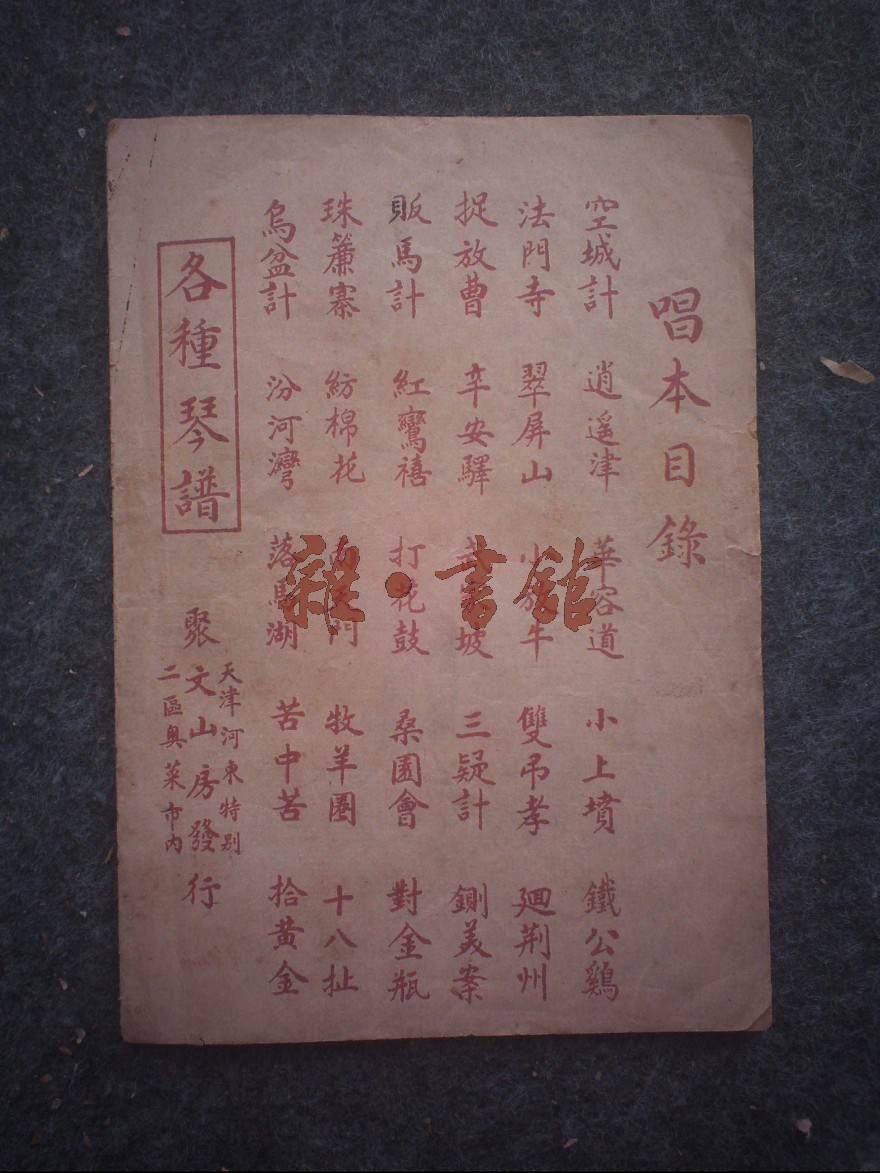 唱本目錄
空城計 逍遥津 華容道 小上墳 鐵公鷄
法門寺 翠屏山 小放牛 雙吊孝 廻荆州
捉放曹 辛安驛 坡 三疑計 鍘美案
販馬計 紅鸞禧 打花鼓 桑園會 對金瓶
珠簾寨 紡棉花 門 牧羊圈 十八扯
烏盆計 汾河灣 落馬湖 苦中苦 拾黃金
各種琴譜
天津河東特别
二區奥菜市内
聚文山房發行
雜·書館